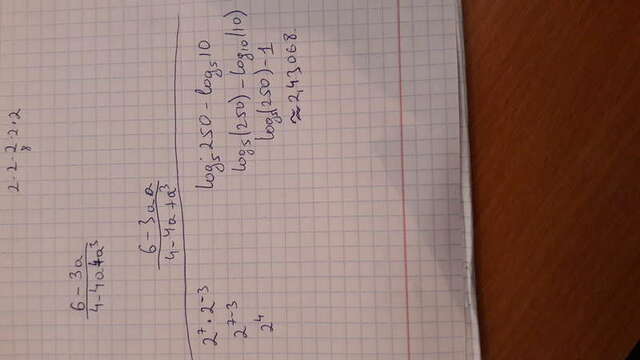 2·2·2·2·2
8
6-3a
4-4a+a³
6-3aa
4-4a+a³
2⁷·2⁻³
2⁷⁻³
2⁴
log₅250-log₅10
log₅(250)-log₁₀(10)
log₅(250)-1
≈2,43068.